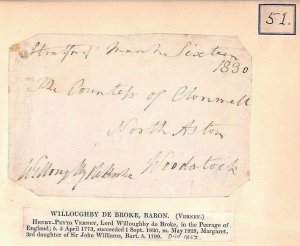 51.
Stratford March Sixteen
1830
The Countess of Clonmell
North Aston
Woodstock
Willoughby de Broke
WILLOUGHBY DE BROKE, BARON. (VERNEY.)
HENRY-PEYTO VERNEY, Lord Willoughby de Broke, in the Peerage of
England; b. 5 April 1773, succeeded 1 Sept. 1820, m. May 1829, Margaret,
3rd daughter of Sir John Williams, Bart. b. 1799. Died 1852